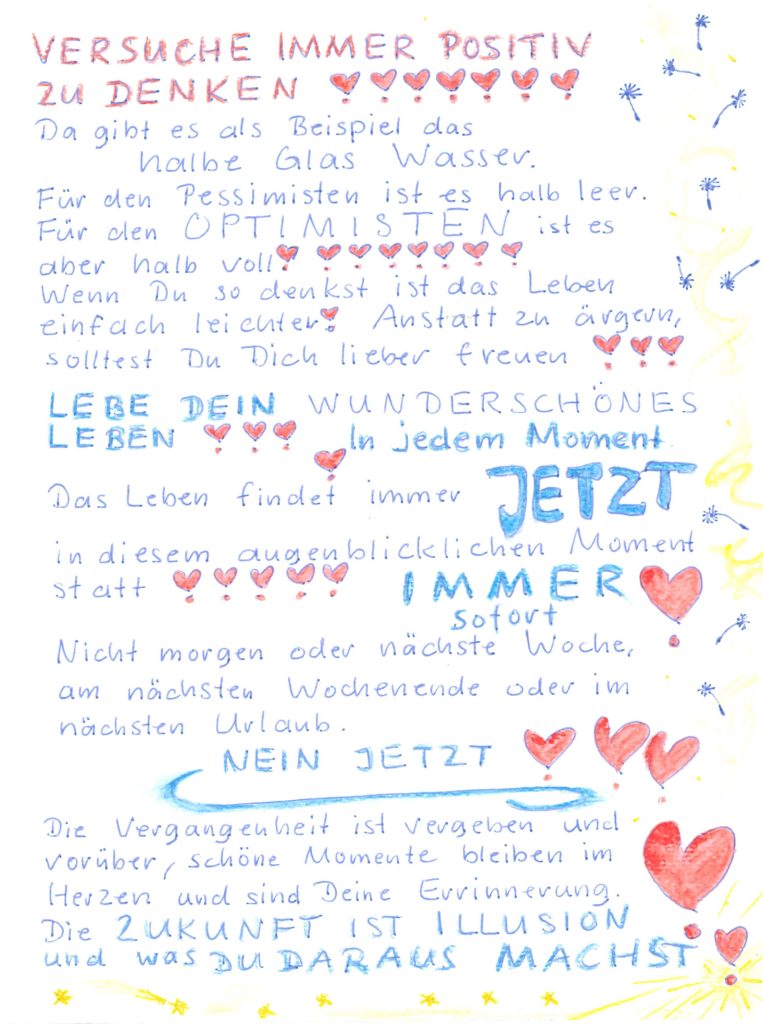 VERSUCHE IMMER POSITIV
ZU DENKEN !!!!!!!
Da gibt es als Beispiel das
halbe Glas Wasser.
Für den Pessimisten ist es halb leer.
Für den OPTIMISTEN ist es
aber halb voll! !!!!!!!
Wenn Du so denkst ist das Leben
einfach leichter! Anstatt zu ärgern,
solltest Du Dich lieber freuen !!!
LEBE DEIN WUNDERSCHÖNES
LEBEN !!! In jedem Moment !
Das Leben findet immer JETZT
in diesem augenblicklichen Moment
statt !!!!! IMMER !
sofort
Nicht morgen oder nächste Woche,
am nächsten Wochenende oder im
nächsten Urlaub.
NEIN JETZT !!!
Die Vergangenheit ist vergeben und
vorüber, schöne Momente bleiben im
Herzen und sind Deine Errinnerung.
Die ZUKUNFT IST ILLUSION
und was DU DARAUS MACHST !!